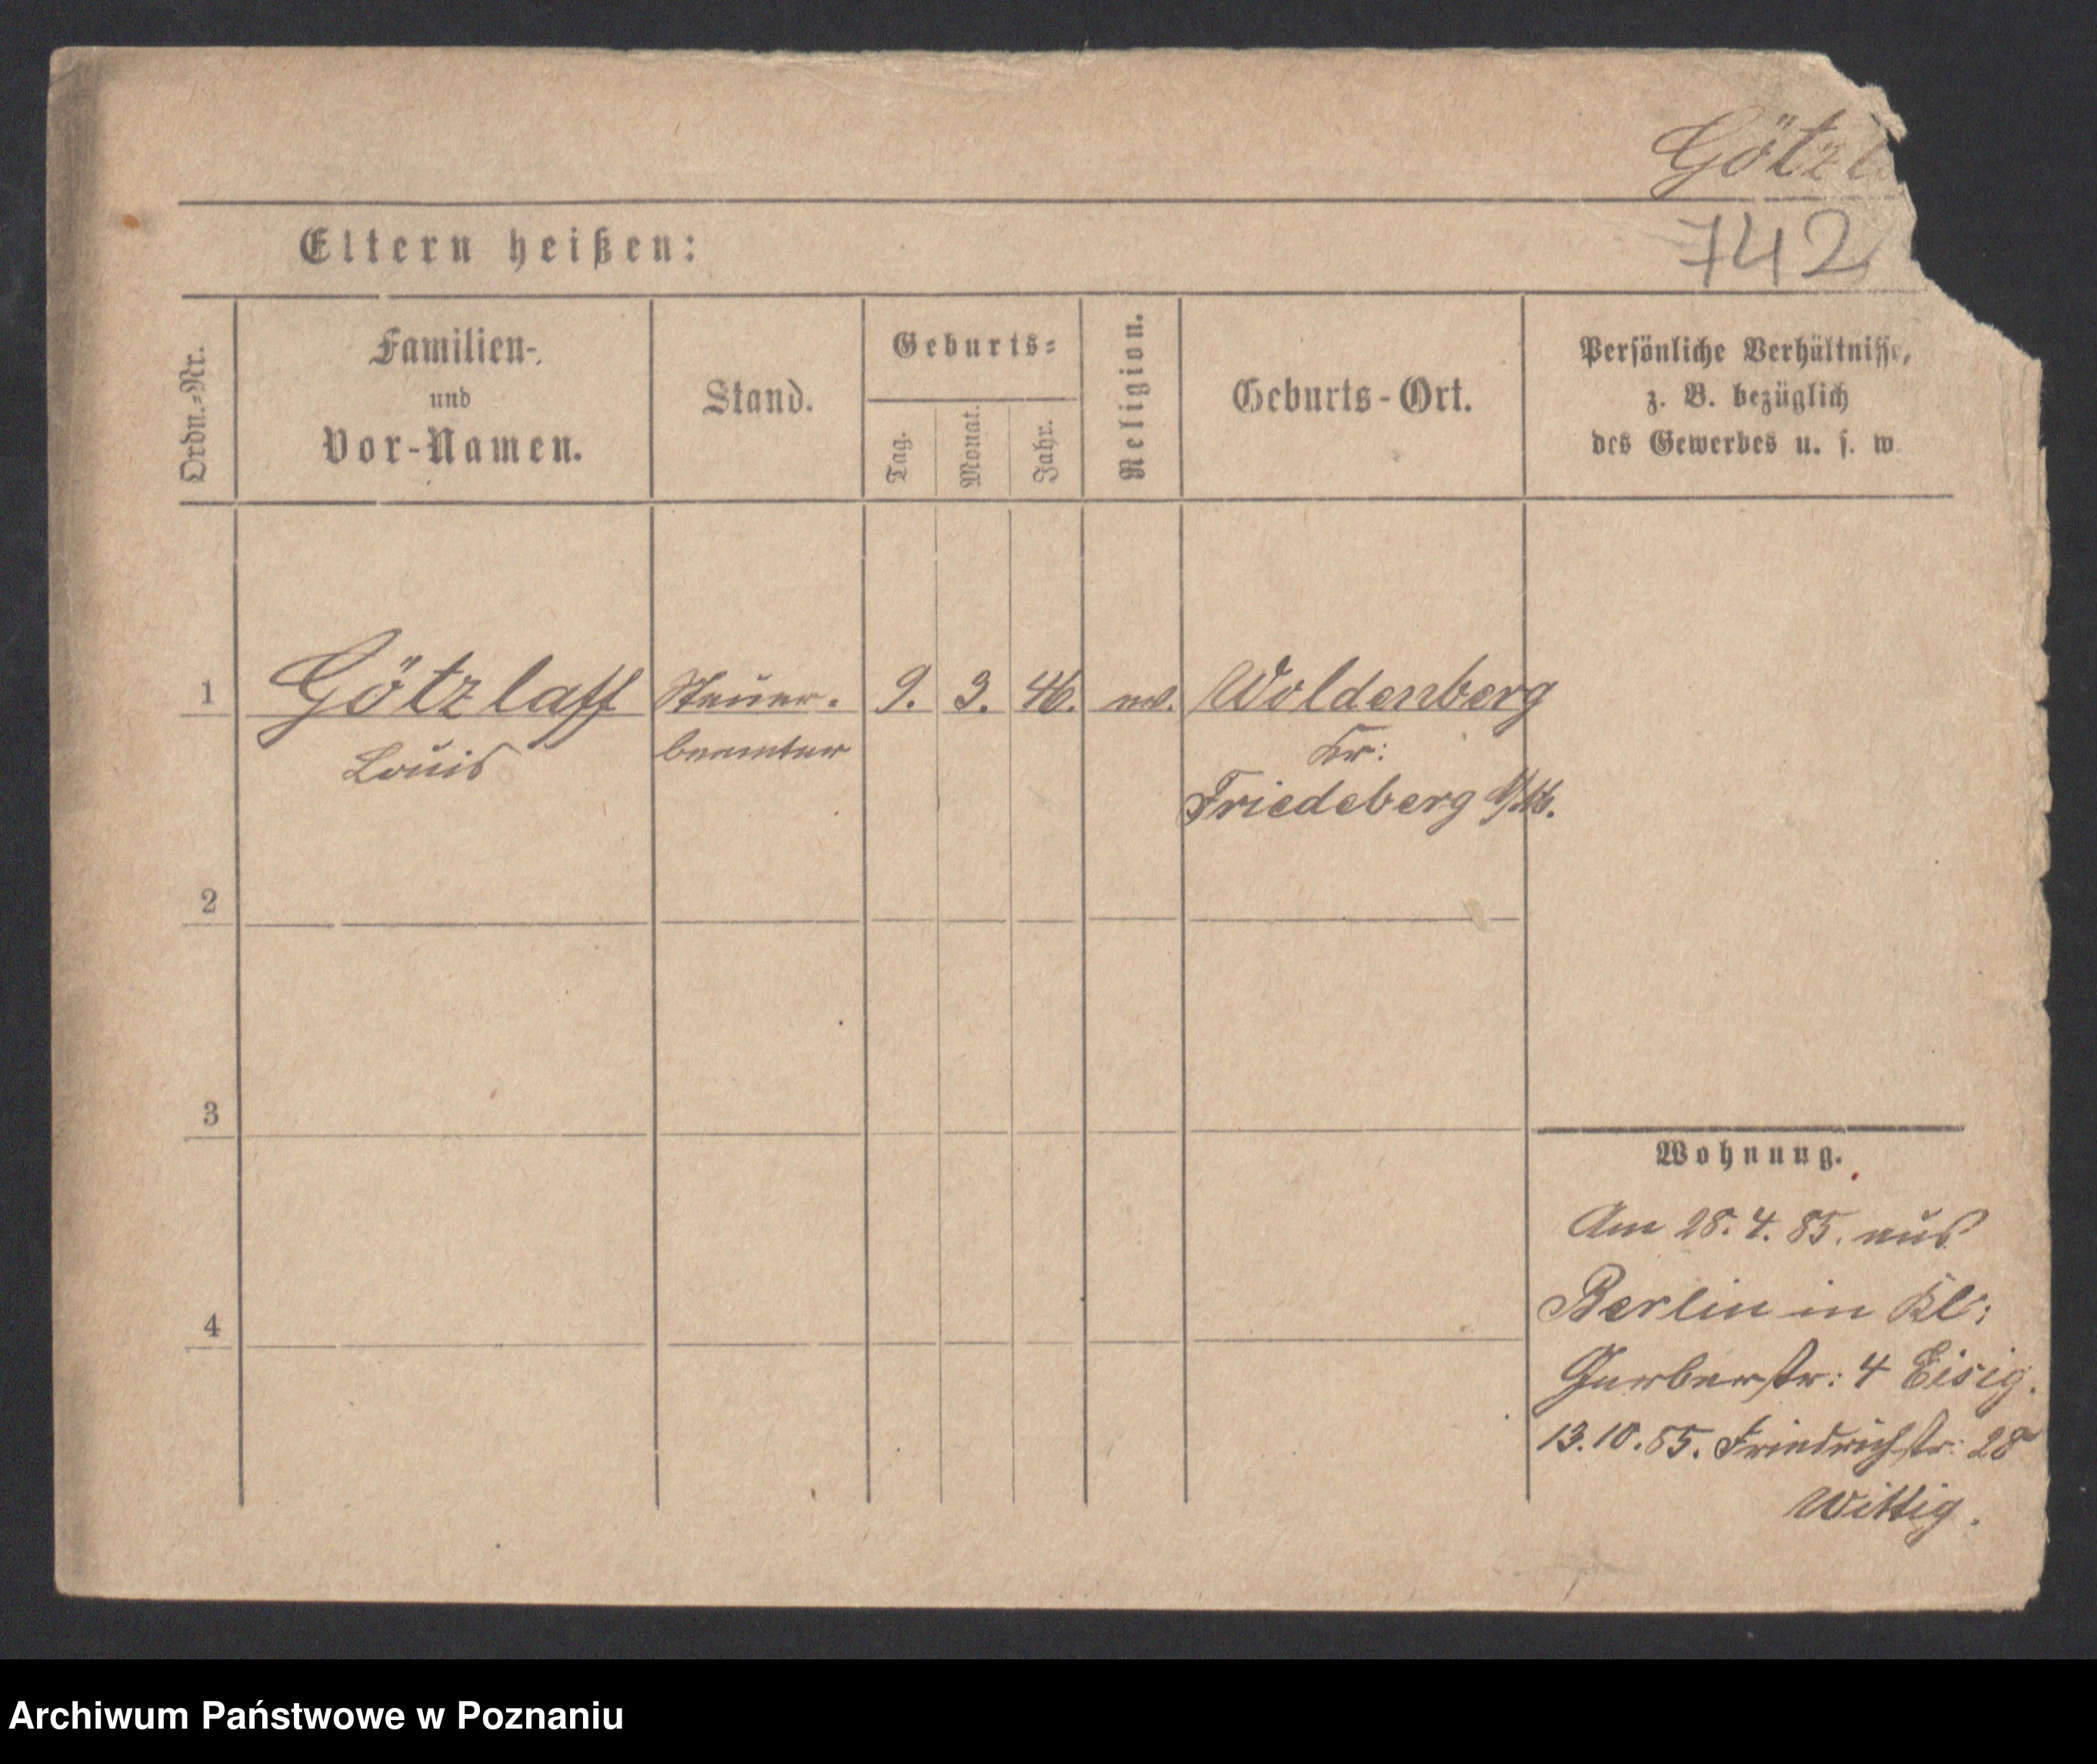 Götzl
742
Eltern heißen:
Ordn.-Nr.
Familien-
und
Vor-Namen.
Stand.
Geburts-
Tag.
Monat.
Jahr.
Religion.
Geburts-Ort.
Persönliche Verhältnisse,
z. B. bezüglich
des Gewerbes u. s. w.
1 Götzlaff Steuer- 9. 3. 46. ev. Woldenberg
Louis beamter Kr:
Friedeberg N/M.
2
3
4
Wohnung.
Am 28. 4. 85. aus
Berlin in Kl:
Gerberstr: 4 Eisig.
13.10.85. Friedrichstr: 28
Wittig.
Archiwum Państwowe w Poznaniu